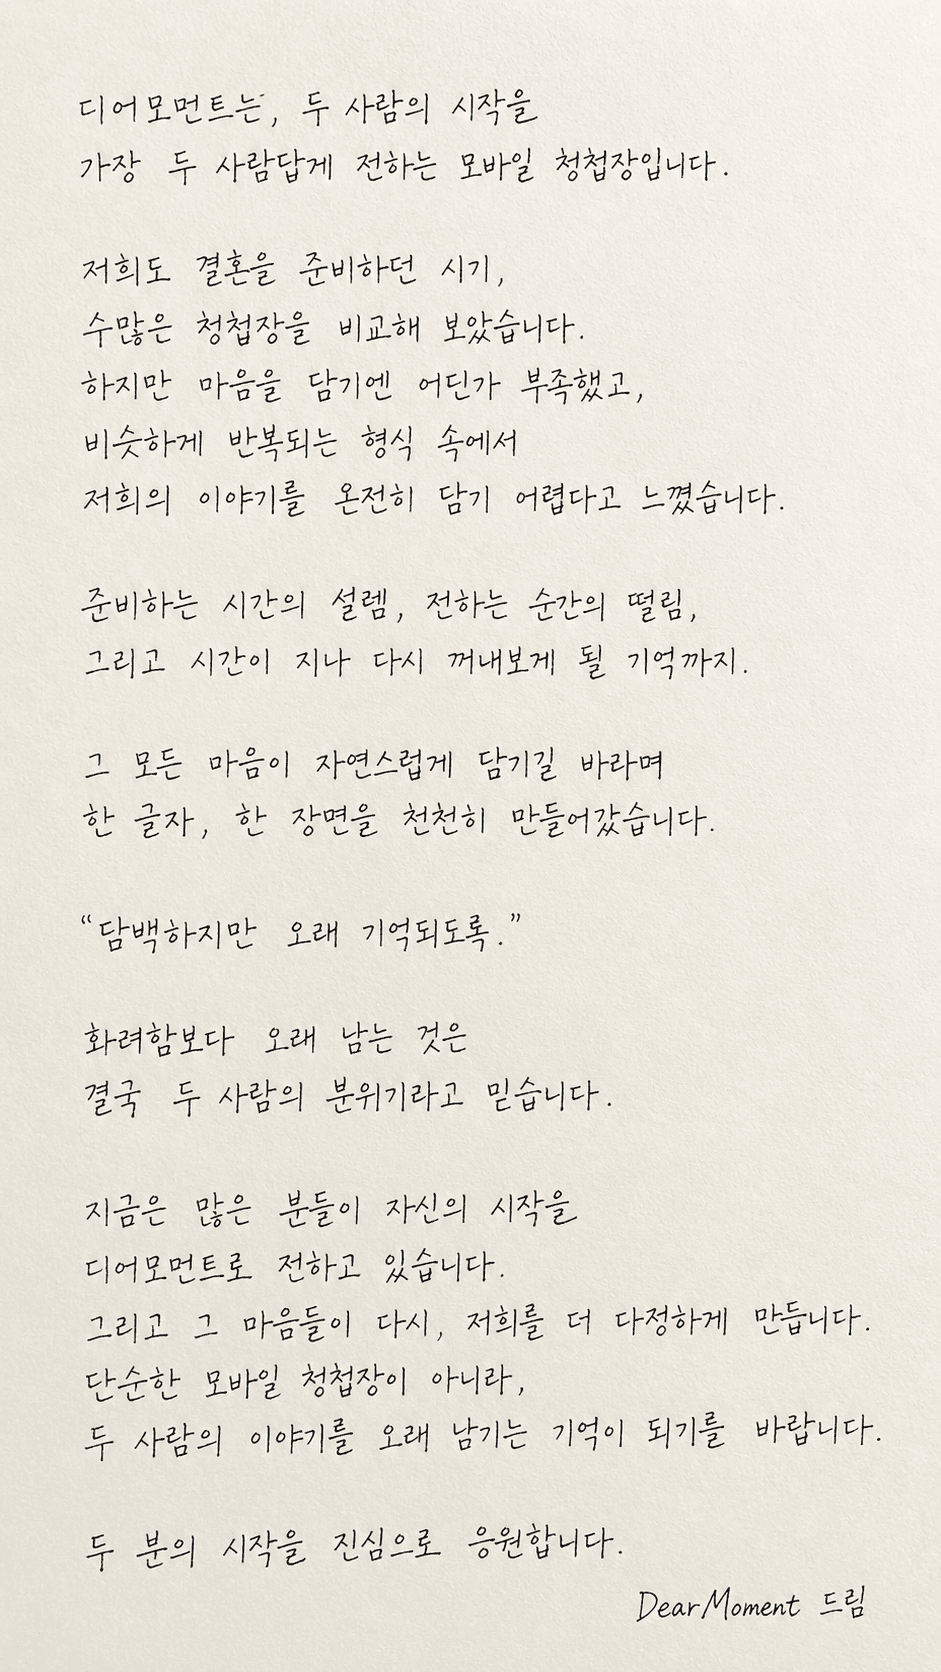 디어모먼트는, 두 사람의 시작을
가장 두 사람답게 전하는 모바일 청첩장입니다.
저희도 결혼을 준비하던 시기,
수많은 청첩장을 비교해 보았습니다.
하지만 마음을 담기엔 어딘가 부족했고,
비슷하게 반복되는 형식 속에서
저희의 이야기를 온전히 담기 어렵다고 느꼈습니다.
준비하는 시간의 설렘, 전하는 순간의 떨림,
그리고 시간이 지나 다시 꺼내보게 될 기억까지.
그 모든 마음이 자연스럽게 담기길 바라며
한 글자, 한 장면을 천천히 만들어갔습니다.
“담백하지만 오래 기억되도록.”
화려함보다 오래 남는 것은
결국 두 사람의 분위기라고 믿습니다.
지금은 많은 분들이 자신의 시작을
디어모먼트로 전하고 있습니다.
그리고 그 마음들이 다시, 저희를 더 다정하게 만듭니다.
단순한 모바일 청첩장이 아니라,
두 사람의 이야기를 오래 남기는 기억이 되기를 바랍니다.
두 분의 시작을 진심으로 응원합니다.
DearMoment 드림